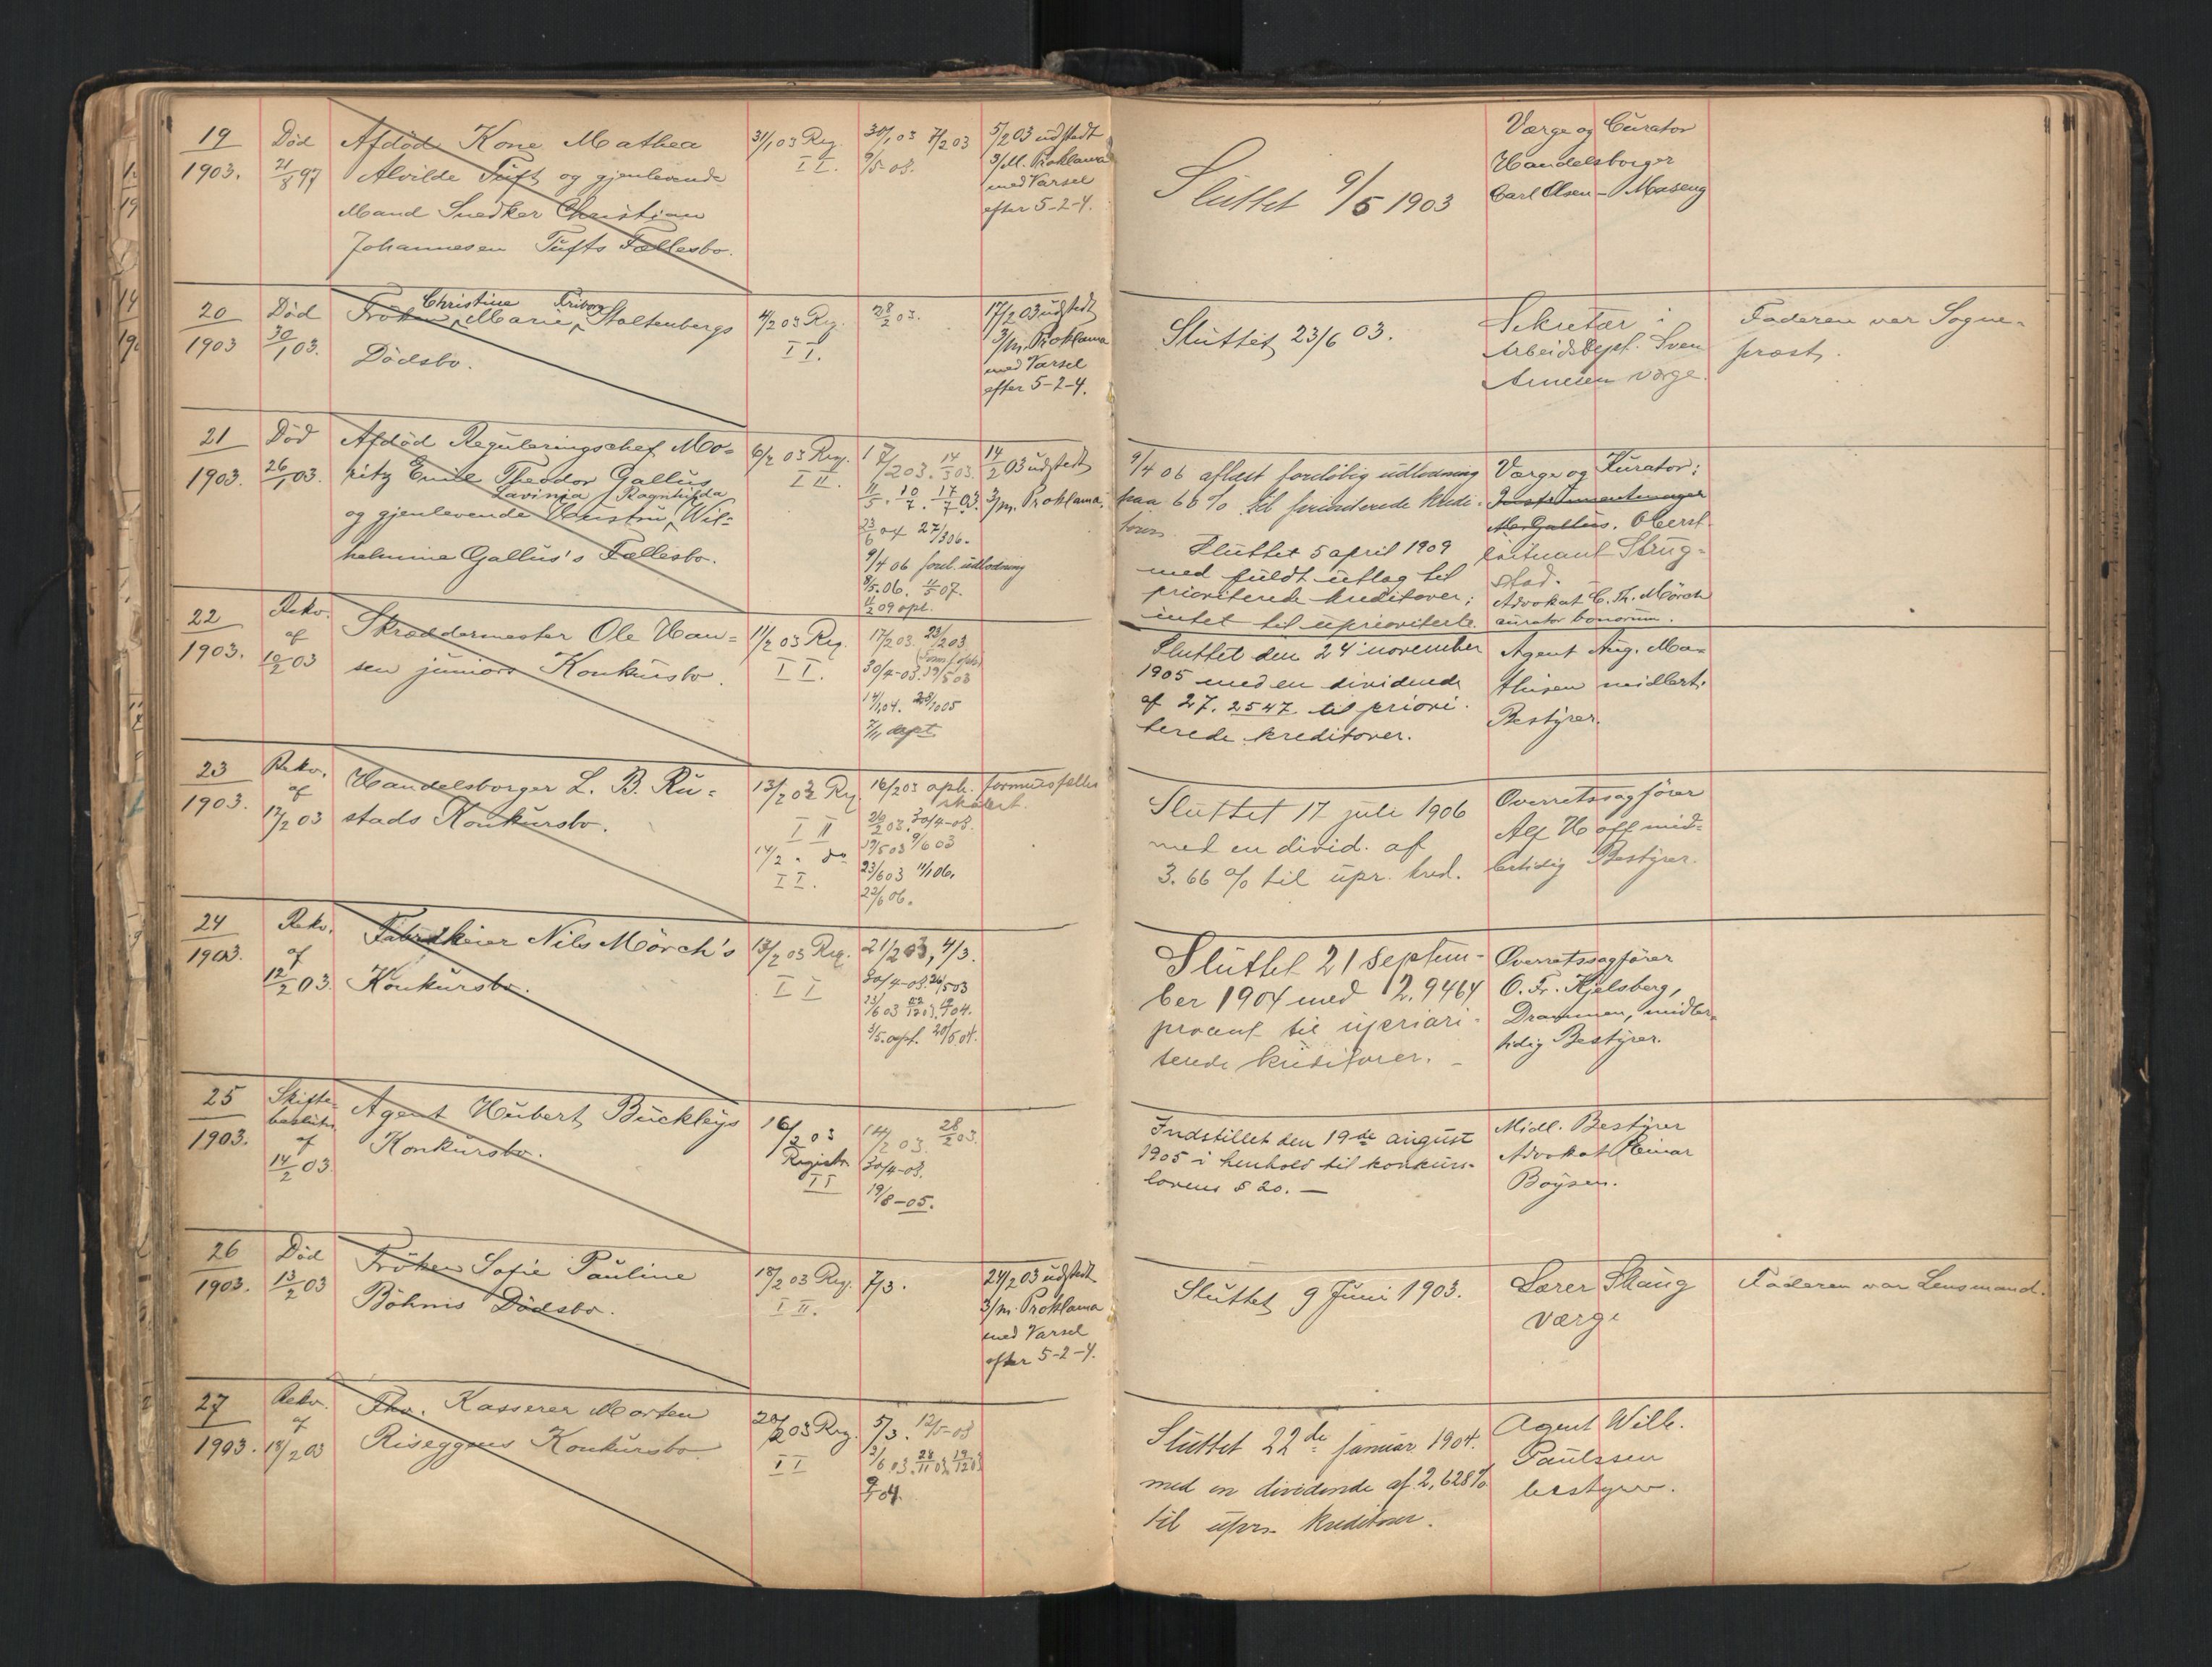 19
1903.
Død
21/8 97
Afdöd Kone Mathea
Alvilde Tuft og gjenlevende
Mand Snedker Christian
Johannesen Tufts Fællesbo.
31/1 03 Reg.
I I.
30/1 03 7/2 03
9/5 03.
5/2 03 udstedt
3/M. Proklama
med Varsel
efter 5-2-4.
Sluttet 9/5 1903
Værge og Curator
Handelsborger
Carl Olsen-Maseng
20
1903
Død
30/1 03.
Christine Friborg
Fröken Marie Stoltenbergs
Dödsbo.
4/2 03 Reg.
I I.
28/2 03.
17/2 03 udstedt
3/m. Proklama
med Varsel
efter 5-2-4.
Sluttet 23/6 03.
Sekretær i
Arbeidsdept. Sven
Arnesen værge.
Faderen var Sogne-
præst.
21
1903.
Död
26/1 03.
Afdöd Reguleringschef Mo=
ritz Emil Theodor Gallus
Lavinia Ragnhilda
og gjenlevende Hustru Wil=
helmine Gallus's Fællesbo.
6/2 03 Reg.
I II.
17/2 03. 14/3 03.
11/5. 10/7. 17/7 03.
23/6 04 27/3 06.
9/4 06 forel. udlodning
8/5. 06. 4/5 07.
4/2 09 opl.
14/2 03 udstedt
3/m. Proklama.
9/4 06 aflæst foreløbig udlodning
paa 66 % til prioriterede kredi-
torer.
Sluttet 5 april 1909
med fuldt utlæg til
prioriterede kreditorer;
intet til uprioriterte.
Værge og Kurator:
Instrumentmager
M. Gallus. Oberst
löitnant Strug-
stad.
Advokat C. Th. Mörch
curator bonorum.
22
1903.
Rekv.
af
10/2 03
Skræddermester Ole Han=
sen juniors Konkursbo.
11/2 03 Reg.
I I.
17/2 03. 23/2 03
30/4-03. 19/5 03
14/1 04. 28/10 05
7/11 dept.
Sluttet den 24 november
1905 med en dividende
af 27. 2547 til priori-
terede kreditorer.
Agent Aug. Ma=
thisen midlert.
Bestyrer.
23
1903.
Rekv.
af
12/2 03
Handelsborger L. B. Ru=
stads Konkursbo.
13/2 03 Reg.
I II
14/2 " do
I I.
16/2 03 oph. formuesfælles
26/2 03. 30/4-03.
19/5 03 9/6 03
23/6 03 11/1 06.
22/6 06.
Sluttet 17 juli 1906
med en divid. af
3.66 % til upr. kred.
Overretssagförer
Alf Hoff mid=
lertidig Bestyrer.
24
1903.
Rekv.
af
12/2 03.
Fabrikeier Nils Mörch's
Konkursbo.
13/2 03 Reg.
I I
21/2 03, 4/3.
30/4-03. 26/5 03
23/6 03 22/12 03. 19/4 04.
3/5. opf. 20/5 04.
Sluttet 21 Septem-
ber 1904 med 12.9464
procent til upriori-
terede kreditorer. –
Overretssagförer
O. Fr. Kjelsberg,
Drammen, midler-
tidig Bestyrer.
25
1903.
Skifte-
beslutn.
af
14/2 03
Agent Hubert Buckleys
Konkursbo.
16/2 03
Registr.
I I
14/2 03. 28/2 03.
30/4-03.
19/8-05.
Indstillet den 19de august
1905 i henhold til konkurs-
lovens § 20. –
Midl. Bestyrer
Advokat Einar
Boysen.
26
1903.
Död
13/2 03
Fröken Sofie Pauline
Böhnis Dödsbo.
18/2 03 Reg.
I II.
7/3.
24/2 03 udstedt
3/m. Proklama
med Varsel
efter 5-2-4.
Sluttet 9 Juni 1903.
Sorer Skaug
værge
Faderen var Lensmand.
27
1903.
Rekv.
af
18/2 03
Fhv. Kasserer Morten
Riseggens Konkursbo.
20/2 03 Reg.
I I
5/3. 12/5-03
2/6 03. 28/11 03. 19/12 03
9/1 04.
Sluttet 22de januar 1904.
med en dividende af 2,628%
til upr. kreditorer.
Agent Wilh.
Paulssen
bestyrer.